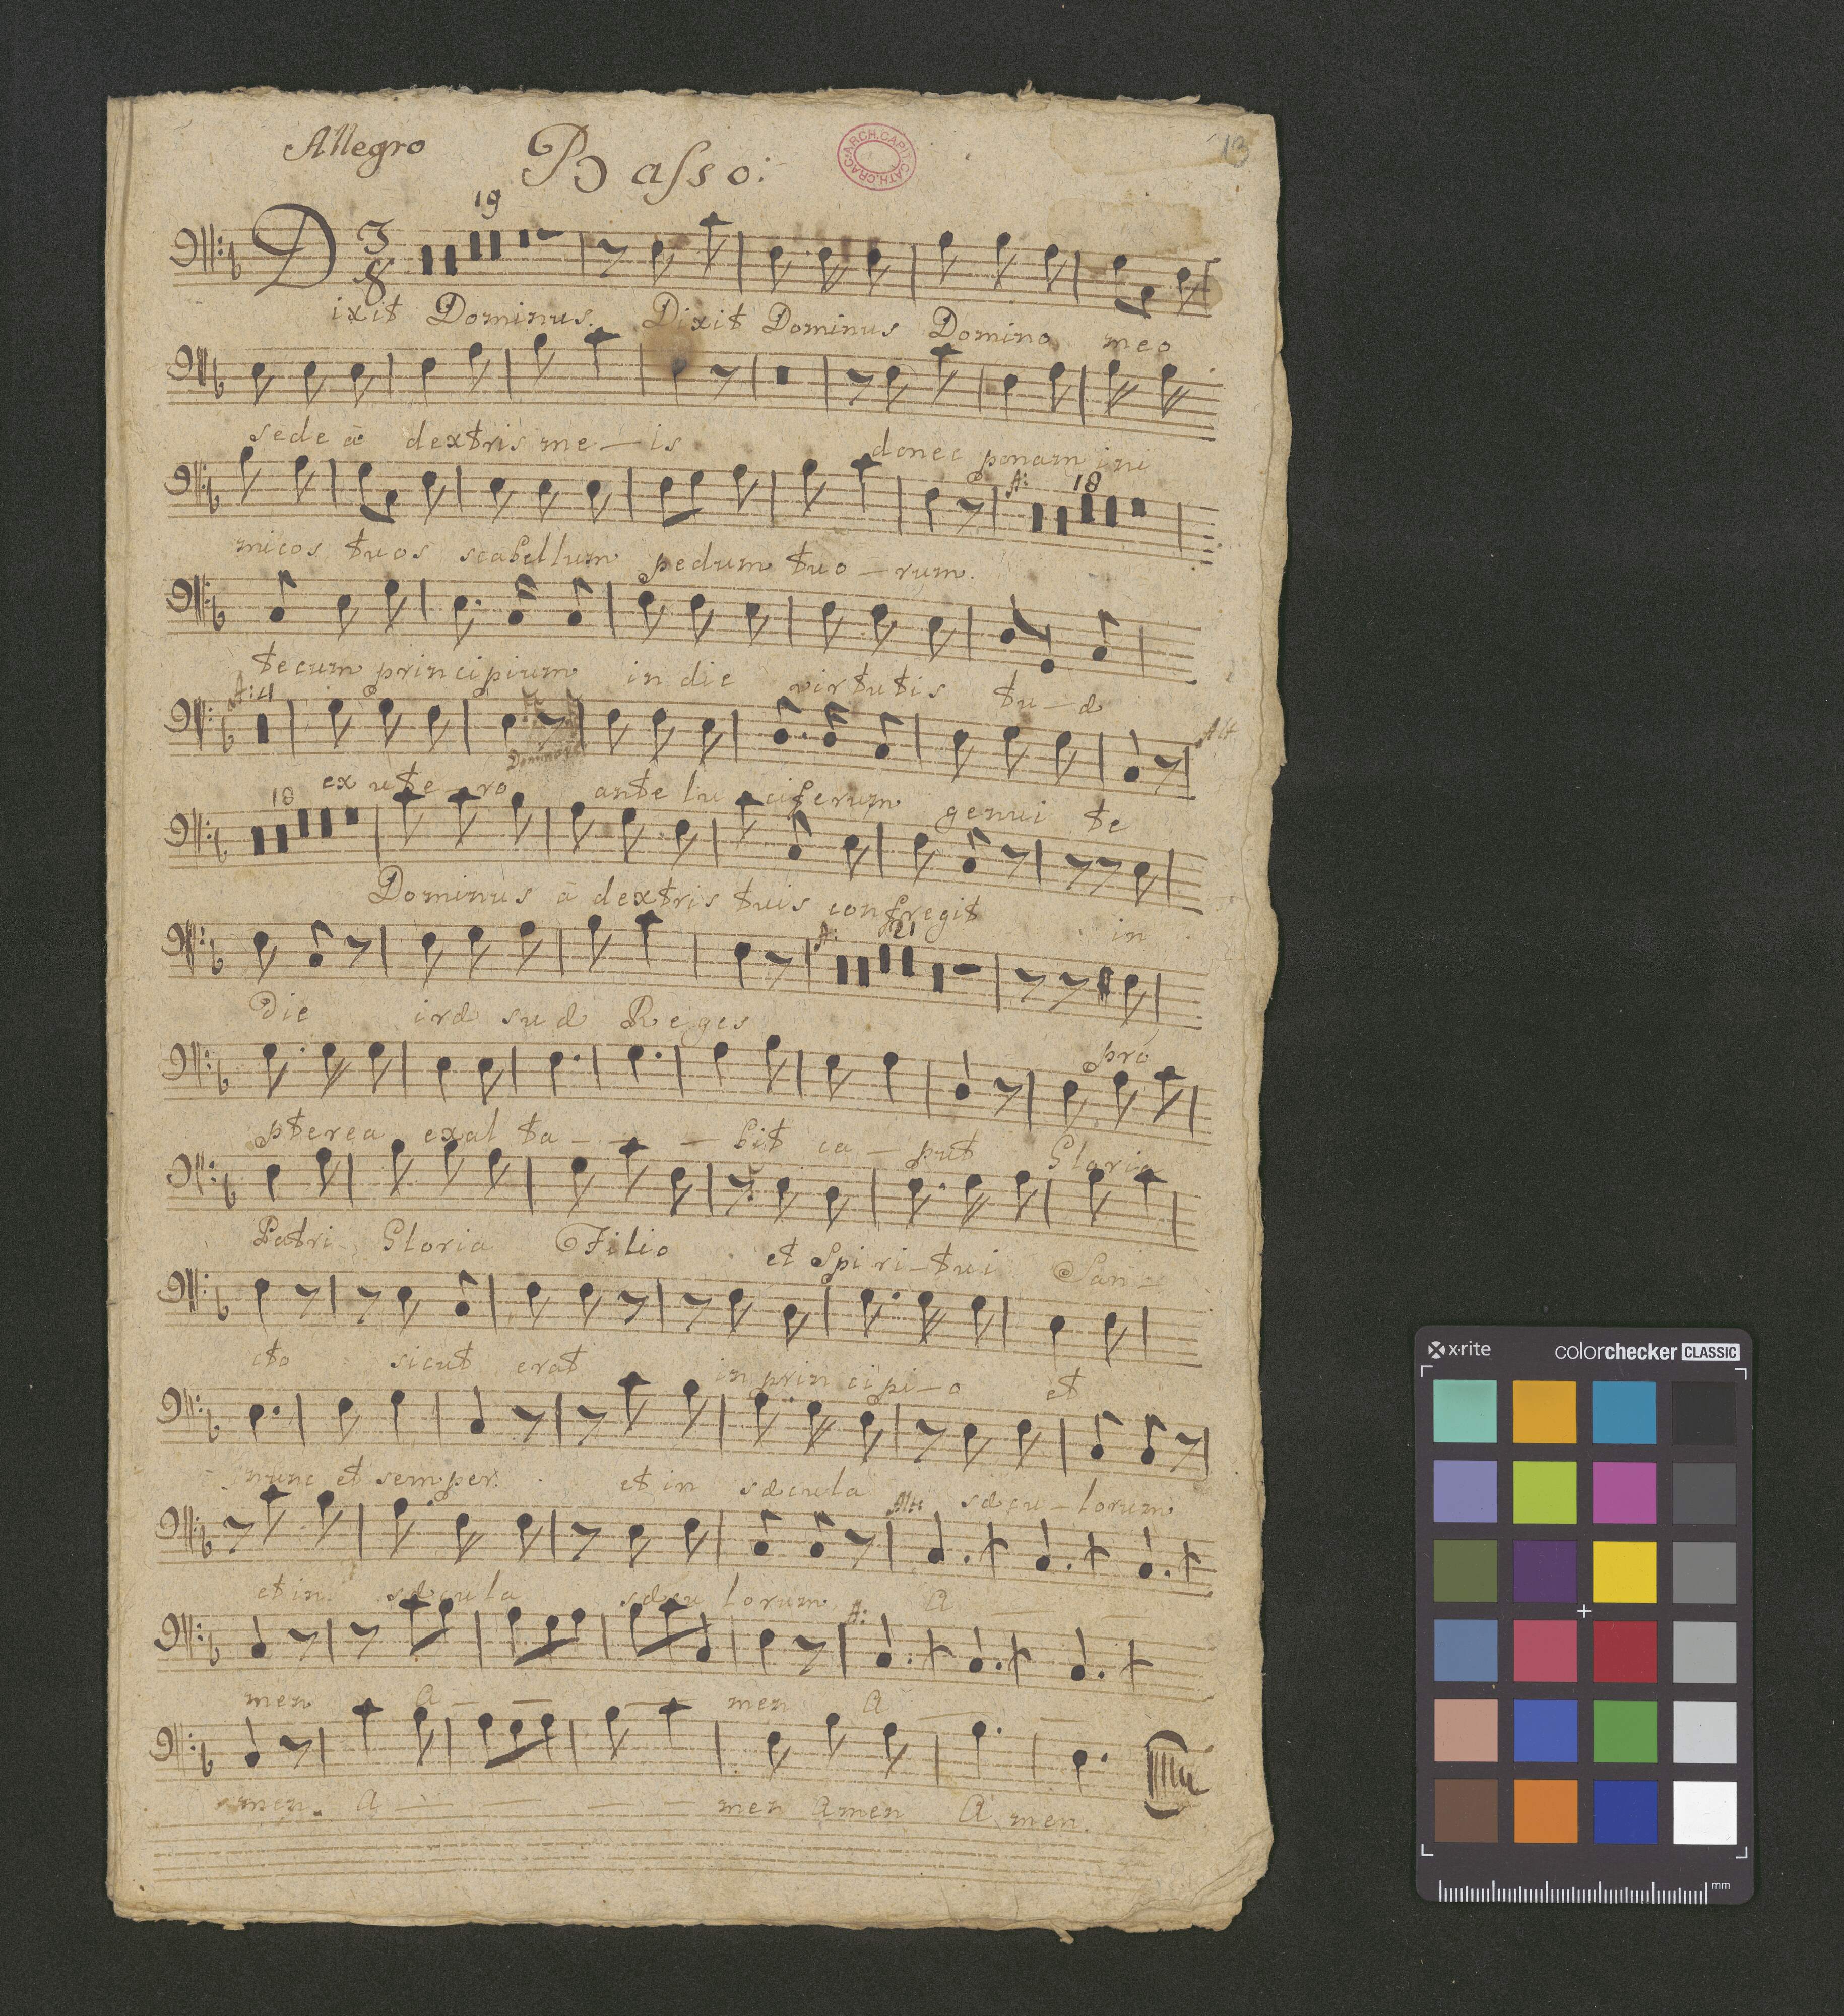 Allegro
Basso:
13
ARCH.CAPIT.CATH.CRAC.
19
D
3
8
ixit Dominus. Dixit Dominus Domino meo
sede à dextris me - is donec ponam ini
A: 18
micos tuos scabellum pedum tuo - rum.
tecum principium in die virtutis tu - æ
A: 4
Alt
ex ute - ro ante lu ciferum genui te
18
Dominus à dextris tuis confregit in
A: 21
Die iræ suæ Reges pro
pterea exal ta - - - bit ca - put Gloria
Patri Gloria Filio et Spiri - tui San -
cto sicut erat in principi - o et
nunc et semper. et in sæcula sæcu - lorum
Alt:
et in sæcula sæcu lorum A
A:
men A - - men A
men. A - - - - men Amen A men.
x·rite
colorchecker CLASSIC
mm